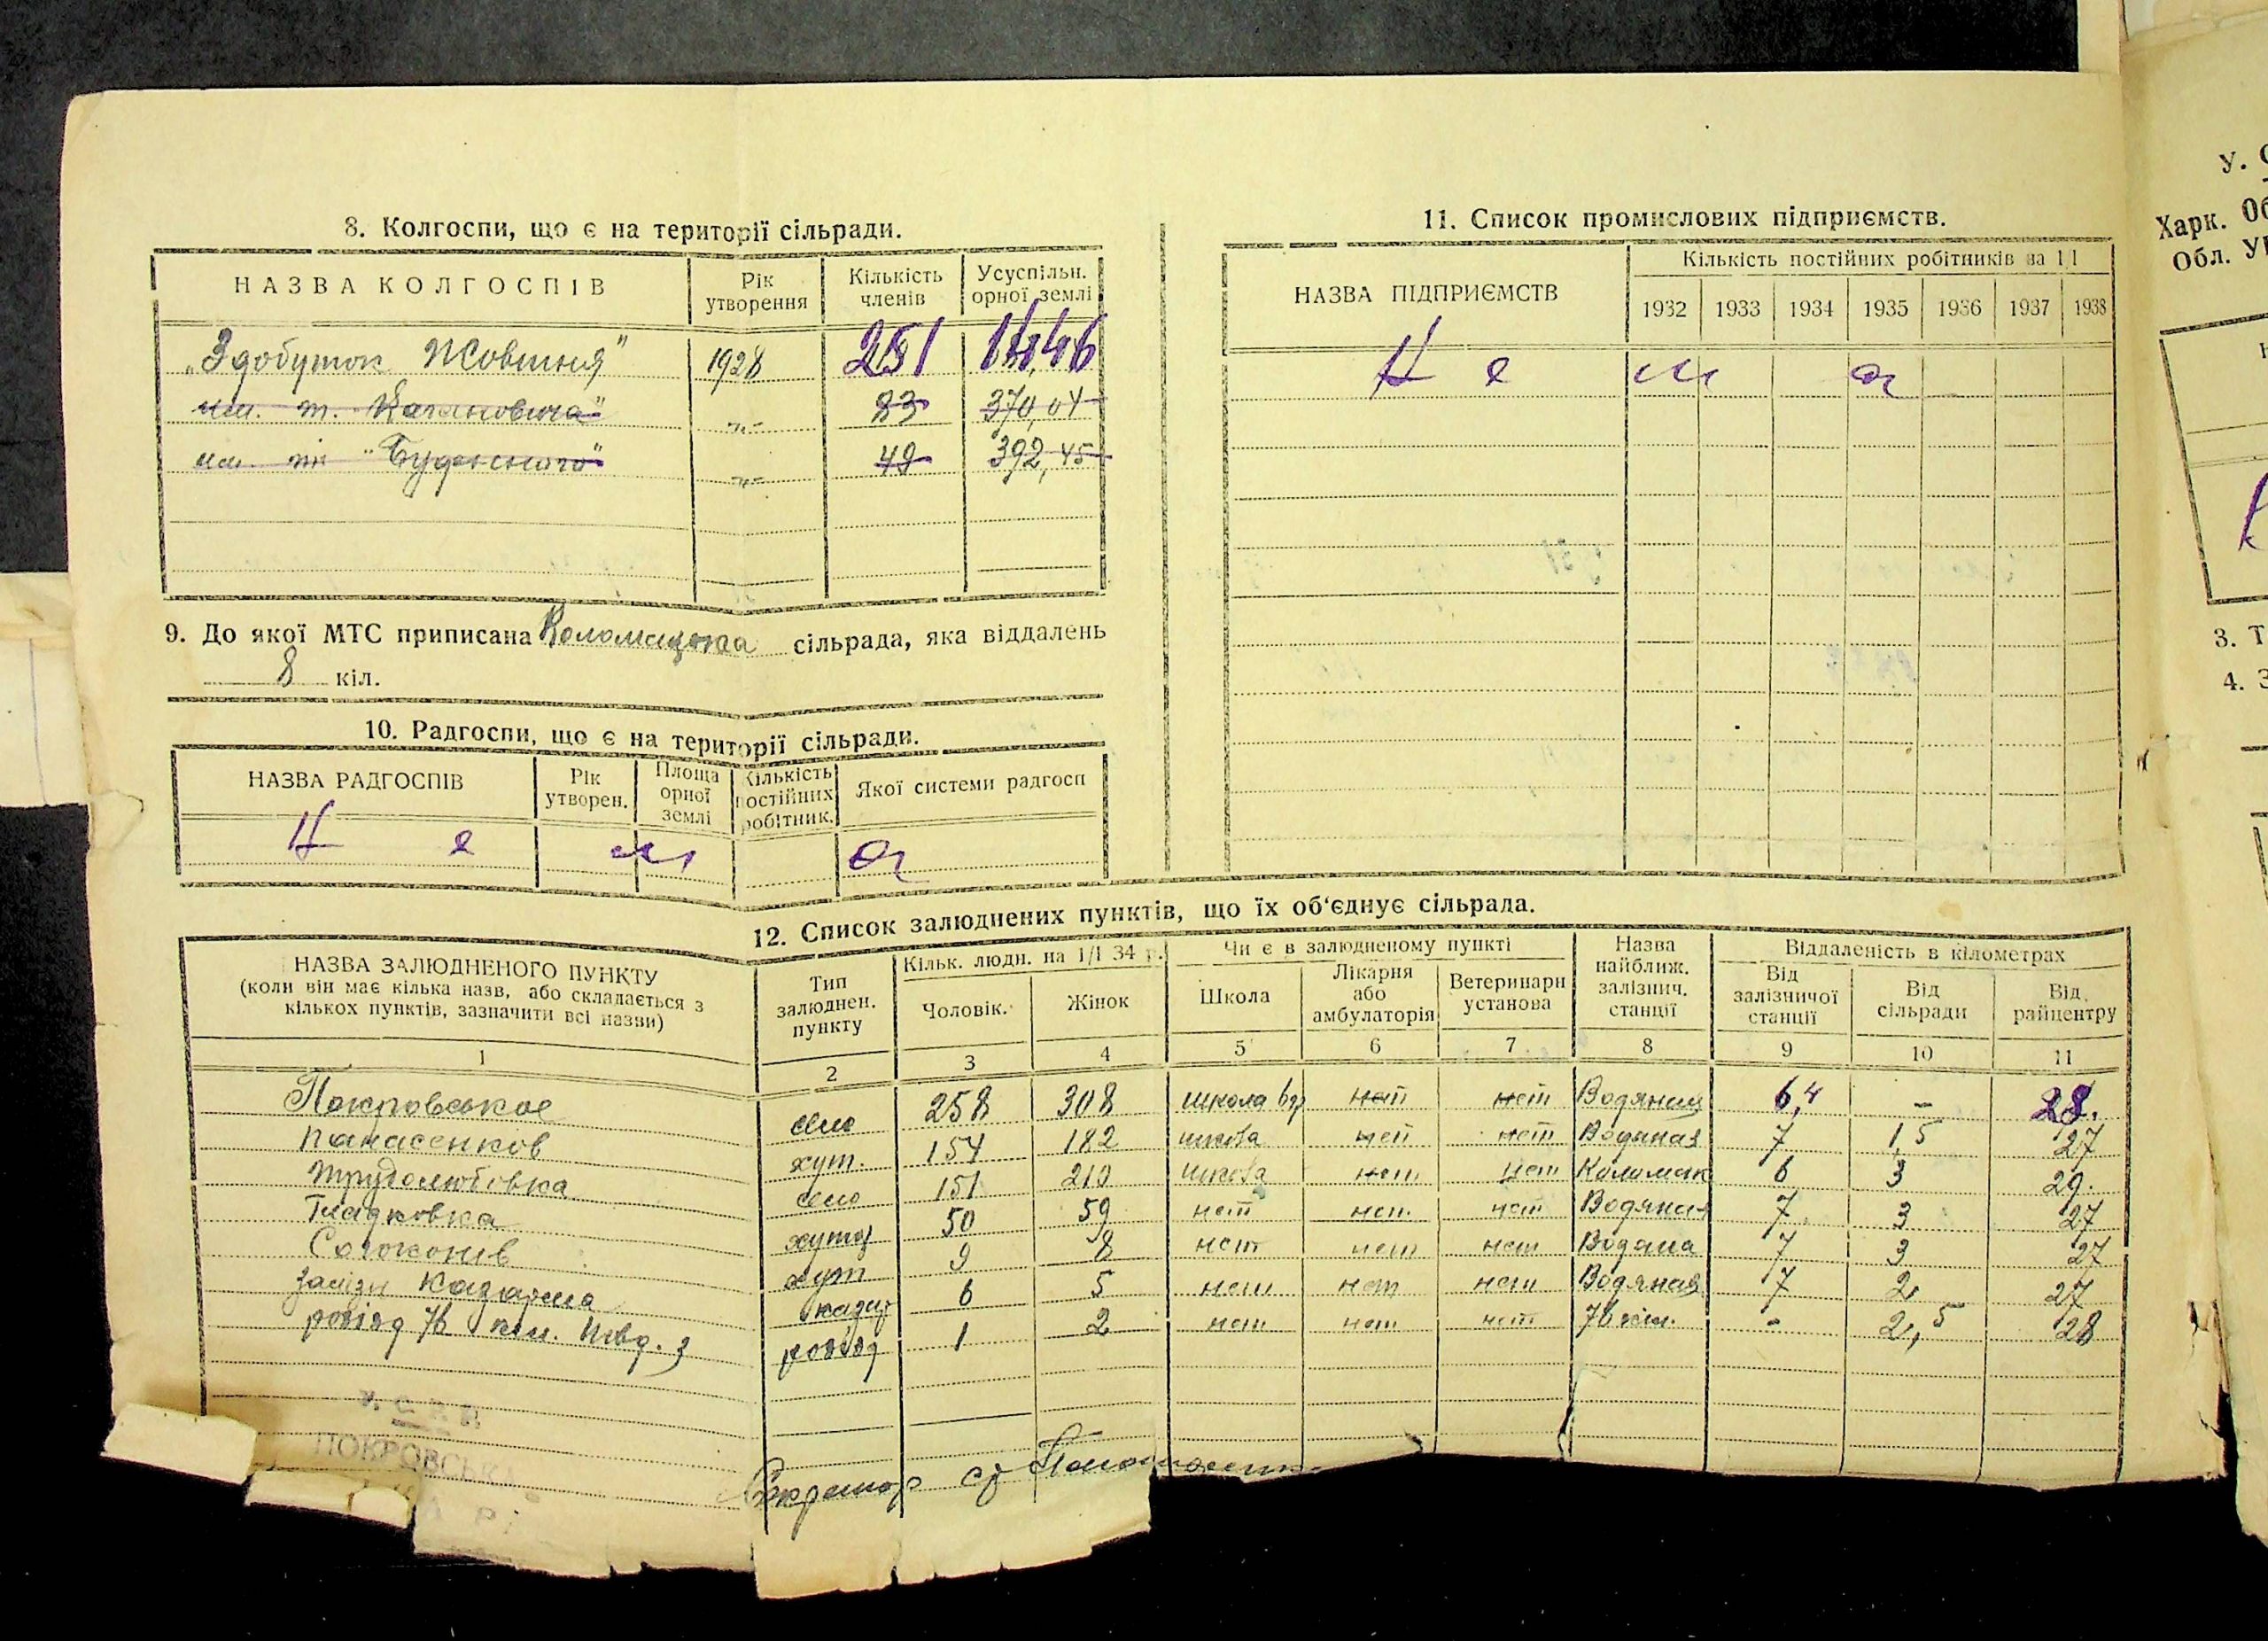 8. Колгоспи, що є на території сільради.
НАЗВА КОЛГОСПІВ Рік утворення Кількість членів Усуспільн. орної землі
„Здобуток Жовтня" 1928 251
им. т. Кагановича" -„- 83 370,04
им. тк "Буденного" -„- 49 392,45
9. До якої МТС приписана Коломацька сільрада, яка віддалень
8 кіл.
10. Радгоспи, що є на території сільради.
НАЗВА РАДГОСПІВ Рік утворен. Площа орної землі Кількість постійних робітник. Якої системи радгосп
Н е м а
11. Список промислових підприємств.
НАЗВА ПІДПРИЄМСТВ Кількість постійних робітників на 1/I
1932 1933 1934 1935 1936 1937 1938
Н е м а
12. Список залюднених пунктів, що їх об'єднує сільрада.
НАЗВА ЗАЛЮДНЕНОГО ПУНКТУ (коли він має кілька назв, або складається з кількох пунктів, зазначити всі назви) Тип залюднен. пункту Кільк. людн. на 1/I 34 р. Чи є в залюдненому пункті Назва найближ. залізнич. станції Віддаленість в кілометрах
Чоловік. Жінок Школа Лікарня або амбулаторія Ветеринарн установа Від залізничої станції Від сільради Від райцентру
1 2 3 4 5 6 7 8 9 10 11
Покровське село 258 308 школа нет нет Водяная 6,4 - 28.
Панасенков хут. 154 182 школа нет нет Водяная 7 1,5 27
Трудолюбовка село 151 213 школа нет нет Коломак 6 3 29.
Гладковка хутор 50 59 нет нет нет Водяная 7 3 27
Согоконів хут 9 8 нет нет нет Водяна 7 3 27
Залізн казарма казар 6 5 нет нет нет Водяная 7 2 27
розїзд 76 клм. Півд. з розїзд 1 2 нет нет нет 76 клм. - 2,5 28
У.С.Р.Р.
ПОКРОВСЬКА
Секретар с/р
У. С
Харк. Об
Обл. У
3. Т
4. З